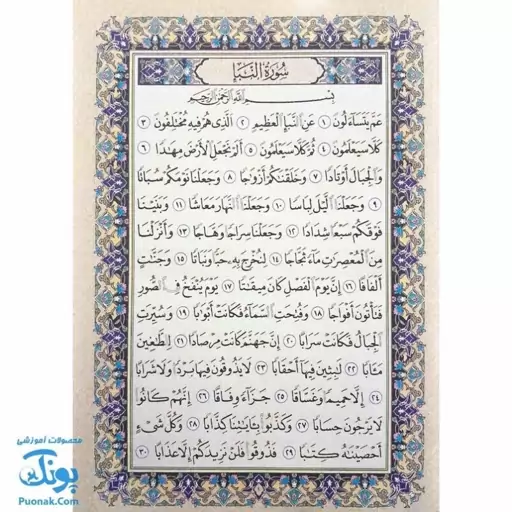 سُورَةُ النَّبَإِ
بِسْمِ اللَّهِ الرَّحْمَٰنِ الرَّحِيمِ
عَمَّ يَتَسَاءَلُونَ ۱ عَنِ النَّبَإِ الْعَظِيمِ ۲ الَّذِي هُمْ فِيهِ مُخْتَلِفُونَ ۳
كَلَّا سَيَعْلَمُونَ ٤ ثُمَّ كَلَّا سَيَعْلَمُونَ ٥ أَلَمْ نَجْعَلِ الْأَرْضَ مِهَٰدًا ٦
وَالْجِبَالَ أَوْتَادًا ۷ وَخَلَقْنَٰكُمْ أَزْوَٰجًا ۸ وَجَعَلْنَا نَوْمَكُمْ سُبَاتًا
۹ وَجَعَلْنَا اللَّيْلَ لِبَاسًا ۱۰ وَجَعَلْنَا النَّهَارَ مَعَاشًا ۱۱ وَبَنَيْنَا
فَوْقَكُمْ سَبْعًا شِدَادًا ۱۲ وَجَعَلْنَا سِرَاجًا وَهَّاجًا ۱۳ وَأَنْزَلْنَا
مِنَ الْمُعْصِرَٰتِ مَاءً ثَجَّاجًا ۱٤ لِنُخْرِجَ بِهِ حَبًّا وَنَبَاتًا ۱٥ وَجَنَّٰتٍ
أَلْفَافًا ۱٦ إِنَّ يَوْمَ الْفَصْلِ كَانَ مِيقَٰتًا ۱۷ يَوْمَ يُنْفَخُ فِي الصُّورِ
فَتَأْتُونَ أَفْوَاجًا ۱۸ وَفُتِحَتِ السَّمَاءُ فَكَانَتْ أَبْوَٰبًا ۱۹ وَسُيِّرَتِ
الْجِبَالُ فَكَانَتْ سَرَابًا ۲۰ إِنَّ جَهَنَّمَ كَانَتْ مِرْصَادًا ۲۱ لِلطَّٰغِينَ
مَـَٔابًا ۲۲ لَٰبِثِينَ فِيهَا أَحْقَابًا ۲۳ لَا يَذُوقُونَ فِيهَا بَرْدًا وَلَا شَرَابًا
۲٤ إِلَّا حَمِيمًا وَغَسَّاقًا ۲٥ جَزَاءً وِفَاقًا ۲٦ إِنَّهُمْ كَانُوا
لَا يَرْجُونَ حِسَابًا ۲۷ وَكَذَّبُوا بِـَٔايَٰتِنَا كِذَّابًا ۲۸ وَكُلَّ شَيْءٍ
أَحْصَيْنَٰهُ كِتَٰبًا ۲۹ فَذُوقُوا فَلَنْ نَزِيدَكُمْ إِلَّا عَذَابًا ۳۰
محصولات آموزشی
پونک
Puonak.Com